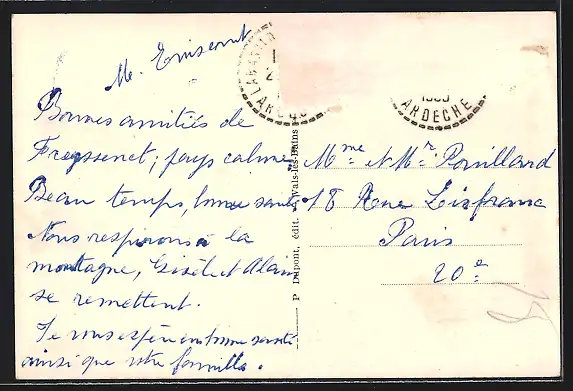 M.
Bonnes amitiés de
Freyssenet, pays calme,
Beau temps, bonne santé
Nous respirons à la
montagne, Gisèle et Alain
se remettent.
Je vous espère en bonne santé
ainsi que votre famille.
LABASTID
LARD
1955
ARDECHE
P Dupont, édit. Vals-les-Bains
Mme et Mr Pouillard
18 Rue Lisfranc
Paris
20e